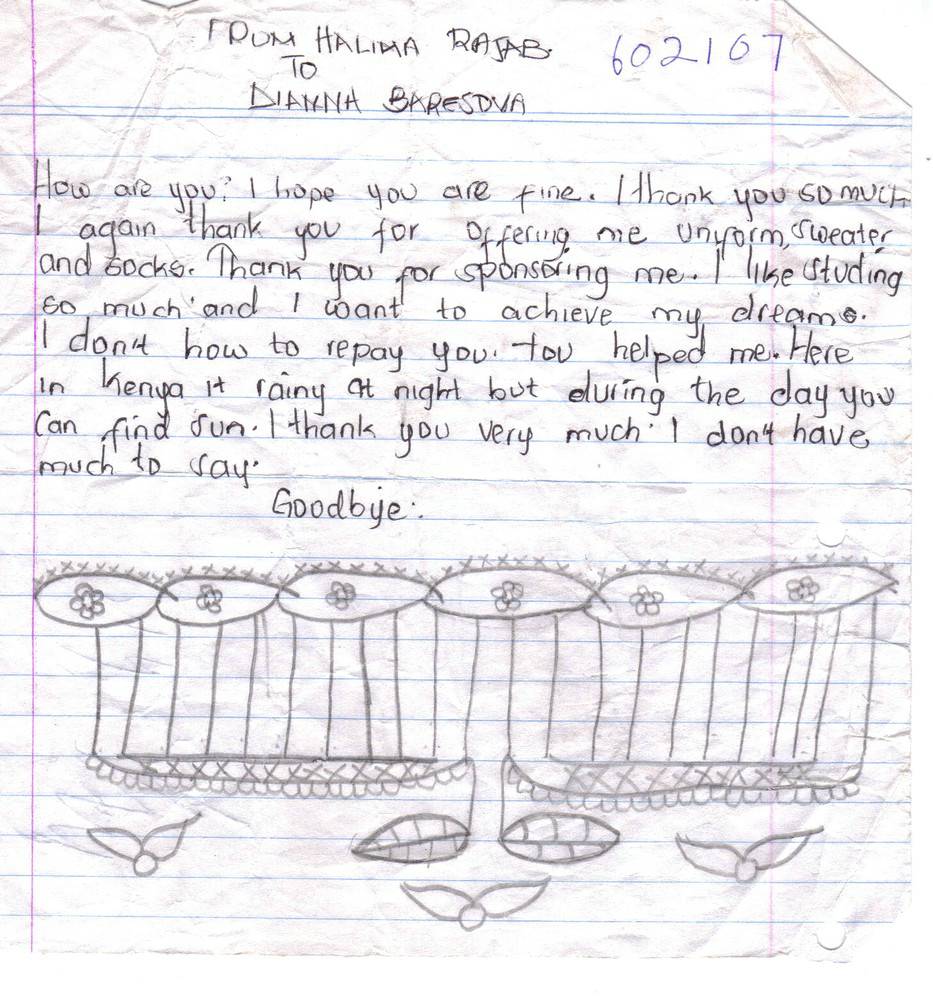 FROM HALIMA RAJAB.
602107
TO
DIANNA BARESOVA
How are you? I hope you are fine. I thank you so much
I again thank you for offering me uniform, sweater
and socks. Thank you for sponsoring me. I like studing
so much and I want to achieve my dreams.
I don't how to repay you. You helped me. Here
in Kenya it rainy at night but during the day you
can find sun. I thank you very much. I don't have
much to say.
Goodbye.